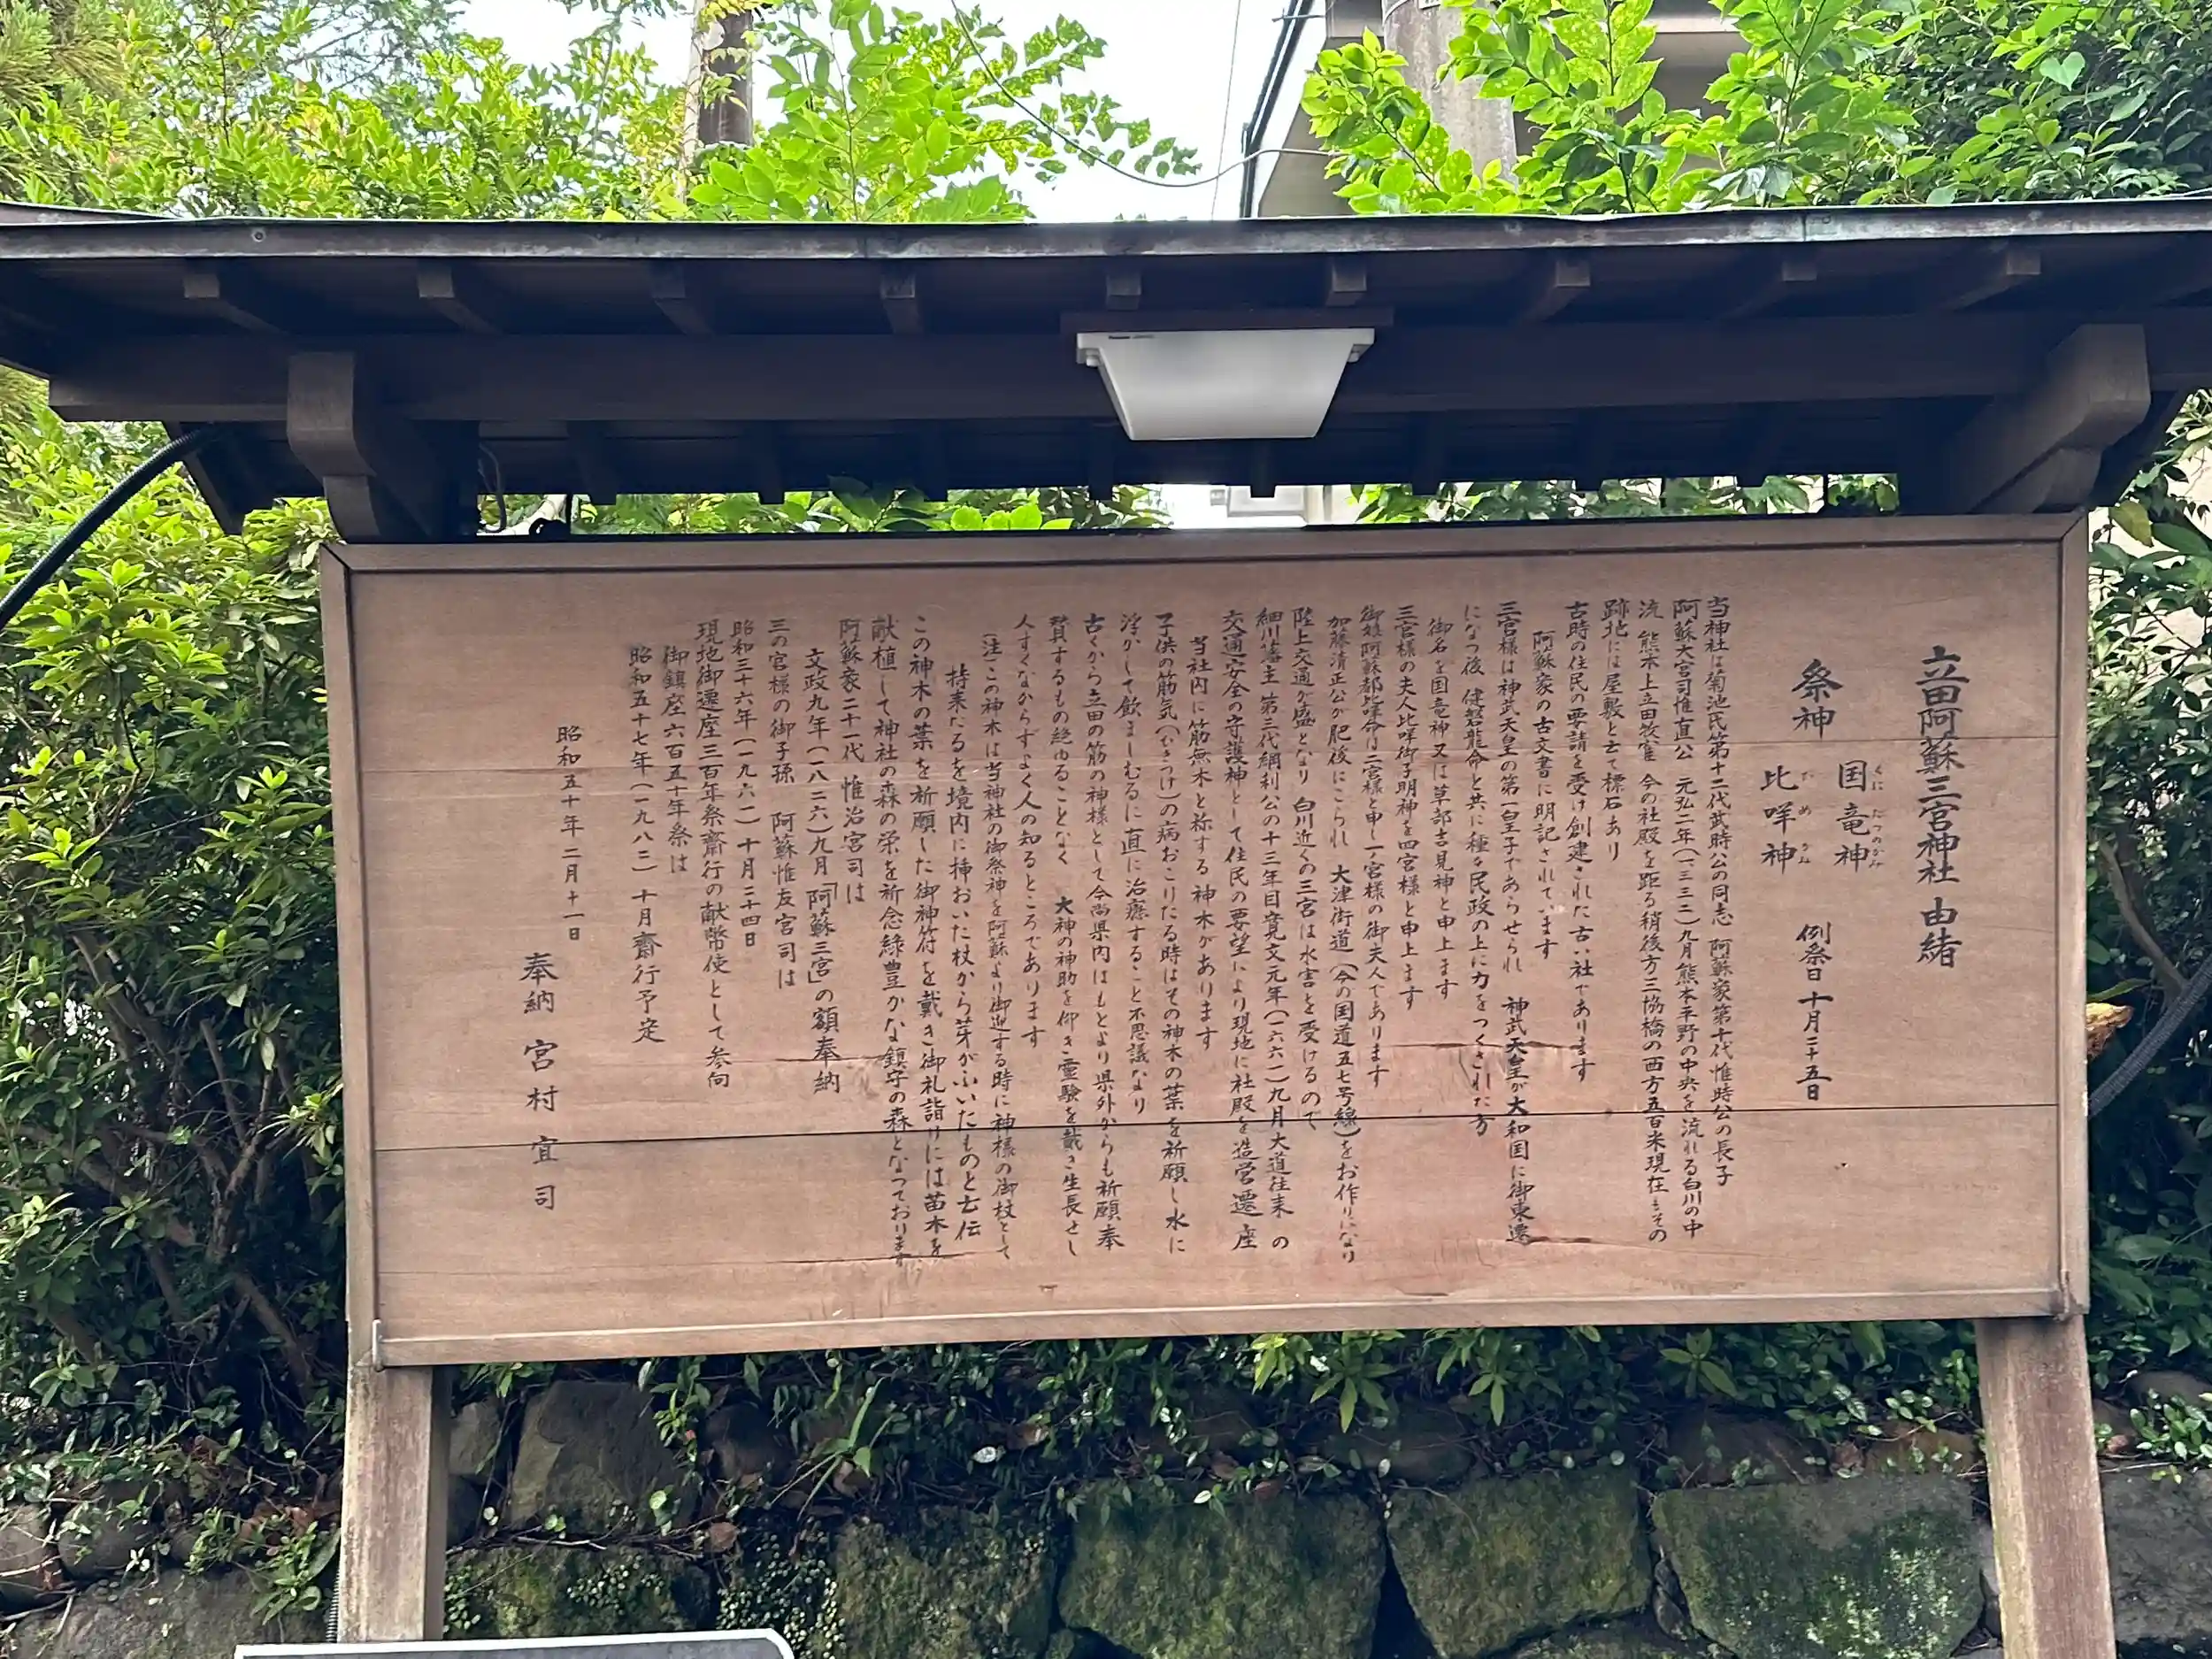 立田阿蘇三宮神社 由緒
祭神 国竜神 比咩神
くに たつのかみ
ひ め かみ
例祭日 十月二十五日
当神社は菊池氏第十二代武時公の同志 阿蘇家第十代惟時公の長子
阿蘇大宮司惟直公 元弘二年(一三三二)九月熊本平野の中央を流れる白川の中
流 熊本上立田牧雀 今の社殿を距る稍後方三協橋の西方五百米現在もその
跡地には屋敷と云て標石あり
古時の住民の要請を受け創建された古い社であります
阿蘇家の古文書に明記されています
三宮様は神武天皇の第一皇子であらせられ 神武天皇が大和国に御東遷
になつ後 健磐龍命と共に種々民政の上に力をつくされた方
御名を国竜神又は草部吉見神と申上ます
三宮様の夫人比咩御子明神を四宮様と申上ます
御娘阿蘇都比咩命は二宮様と申し一宮様の御夫人であります
加藤清正公が肥後にこられ 大津街道(今の国道五七号線)をお作りになり
陸上交通が盛となり 白川近くの三宮は水害を受けるので
細川藩主 第三代綱利公の十三年目寛文元年(一六六一)九月大道往来の
交通安全の守護神として住民の要望により現地に社殿を造営遷座
当社内に筋無木と称する神木があります
子供の筋気(むさつけ)の病おこりたる時はその神木の葉を祈願し水に
浮かして飲ましむるに直に治癒すること不思議なり
古くから立田の筋の神様として今尚県内はもとより県外からも祈願奉
賛するもの絶ゆることなく 大神の神助を仰ぎ霊験を戴き生長せし
人すくなからずよく人の知るところであります
(注)この神木は当神社の御祭神を阿蘇より御迎する時に神様の御杖として
持来たるを境内に挿おいた杖から芽がふいたものと云伝
この神木の葉を祈願した御神符を戴き御礼詣りには苗木を
献植して神社の森の栄を祈念緑豊かな鎮守の森となつております
阿蘇家二十一代 惟治宮司は
文政九年(一八二六)九月「阿蘇三宮」の額奉納
三の宮様の御子孫 阿蘇惟友宮司は
昭和三十六年(一九六一)十月二十四日
現地御遷座三百年祭齋行の献幣使として参向
御鎮座六百五十年祭は
昭和五十七年(一九八二)十月齋行予定
昭和五十年二月十一日
奉納 宮村宜司